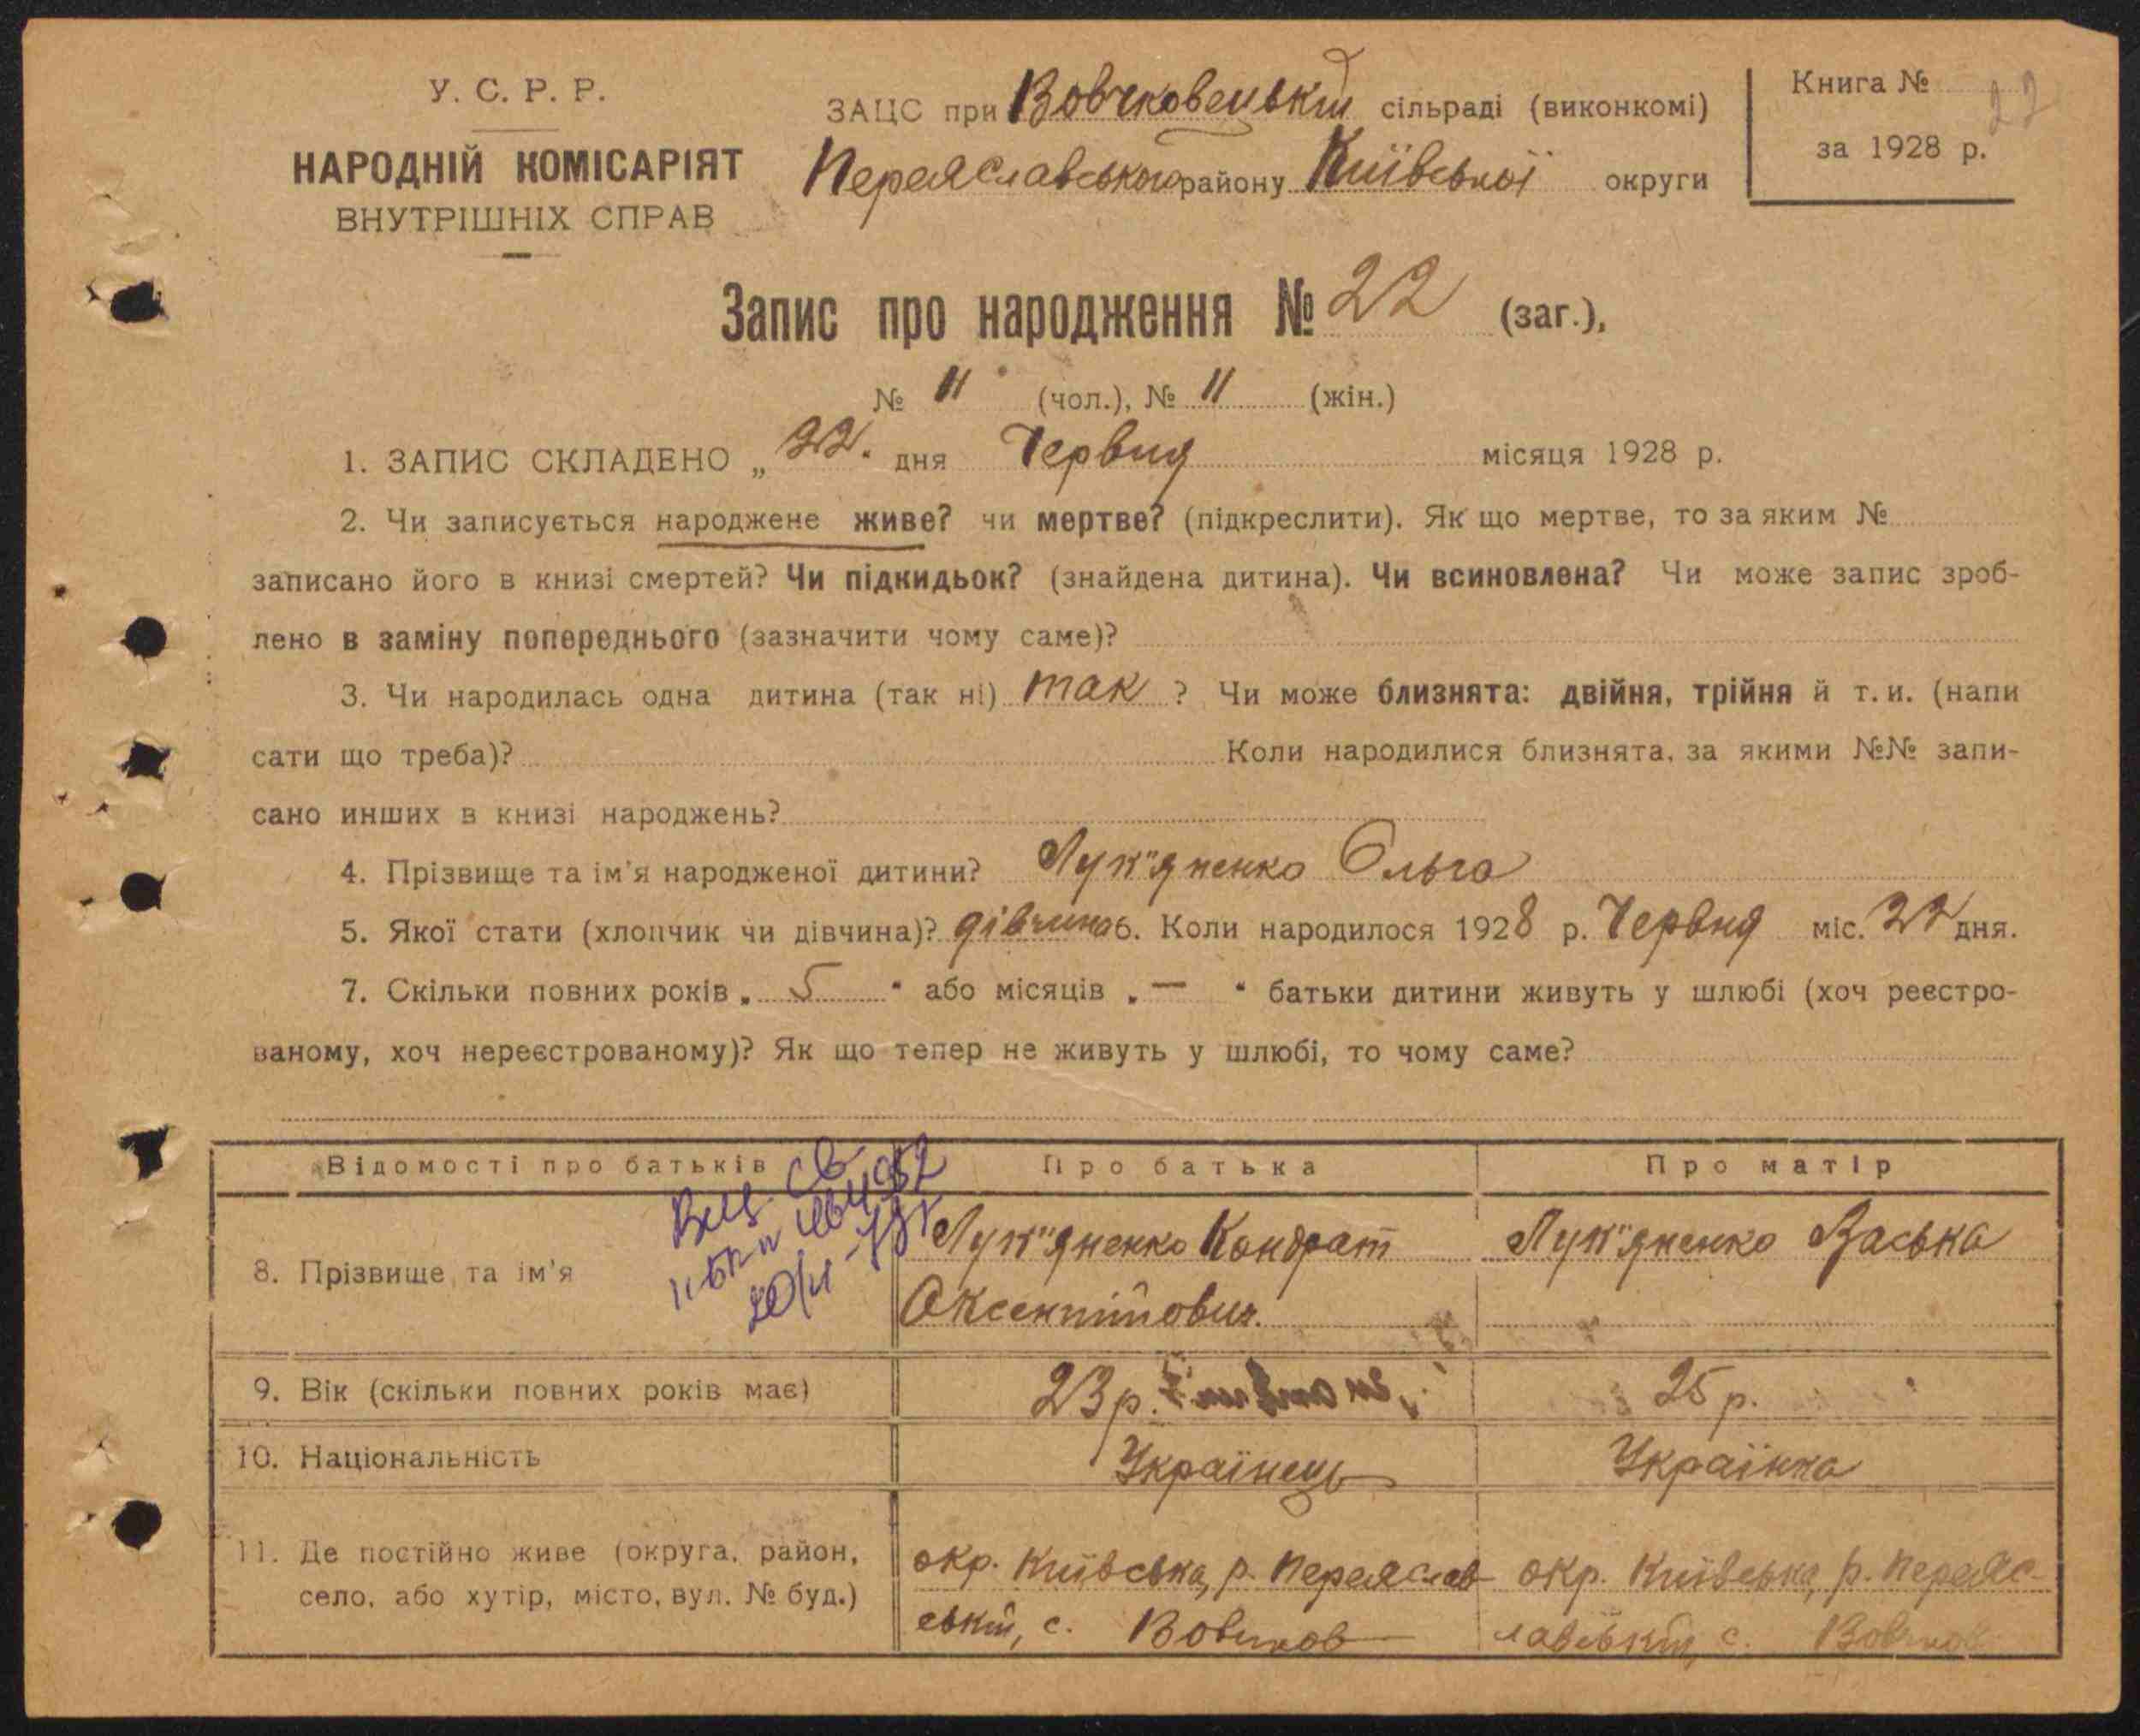 У. С. Р. Р.
НАРОДНІЙ КОМІСАРІЯТ
ВНУТРІШНІХ СПРАВ
ЗАЦС при Вовчковецькій сільраді (виконкомі)
Переяславського району Київської округи
Книга № 22
за 1928 р.
Запис про народження № 22 (заг.),
№ 11 (чол.), № 11 (жін.)
1. ЗАПИС СКЛАДЕНО „22" дня Червня місяця 1928 р.
2. Чи записується народжене живе? чи мертве? (підкреслити). Як що мертве, то за яким №
записано його в книзі смертей? Чи підкидьок? (знайдена дитина). Чи всиновлена? Чи може запис зроб-
лено в заміну попереднього (зазначити чому саме)?
3. Чи народилась одна дитина (так ні) так ? Чи може близнята: двійня, трійня й т. и. (напи
сати що треба)? Коли народилися близнята, за якими №№ запи-
сано инших в книзі народжень?
4. Прізвище та ім'я народженої дитини? Лук"яненко Ольга
5. Якої стати (хлопчик чи дівчина)? дівчина 6. Коли народилося 1928 р. Червня міс. 22 дня.
7. Скільки повних років „ 5 " або місяців „ — " батьки дитини живуть у шлюбі (хоч реєстро-
ваному, хоч нереєстрованому)? Як що тепер не живуть у шлюбі, то чому саме?
Відомості про батьків Про батька Про матір
8. Прізвище та ім'я Лук"яненко Кондрат Лук"яненко Васька
Оксентійович.
9. Вік (скільки повних років має) 23 р. 25 р.
10. Національність Українець Українка
11. Де постійно живе (округа, район, окр. Київська, р. Переяслав окр. Київська, р. Переяс-
село, або хутір, місто, вул. № буд.) ський, с. Вовчков лавський, с. Вовчков